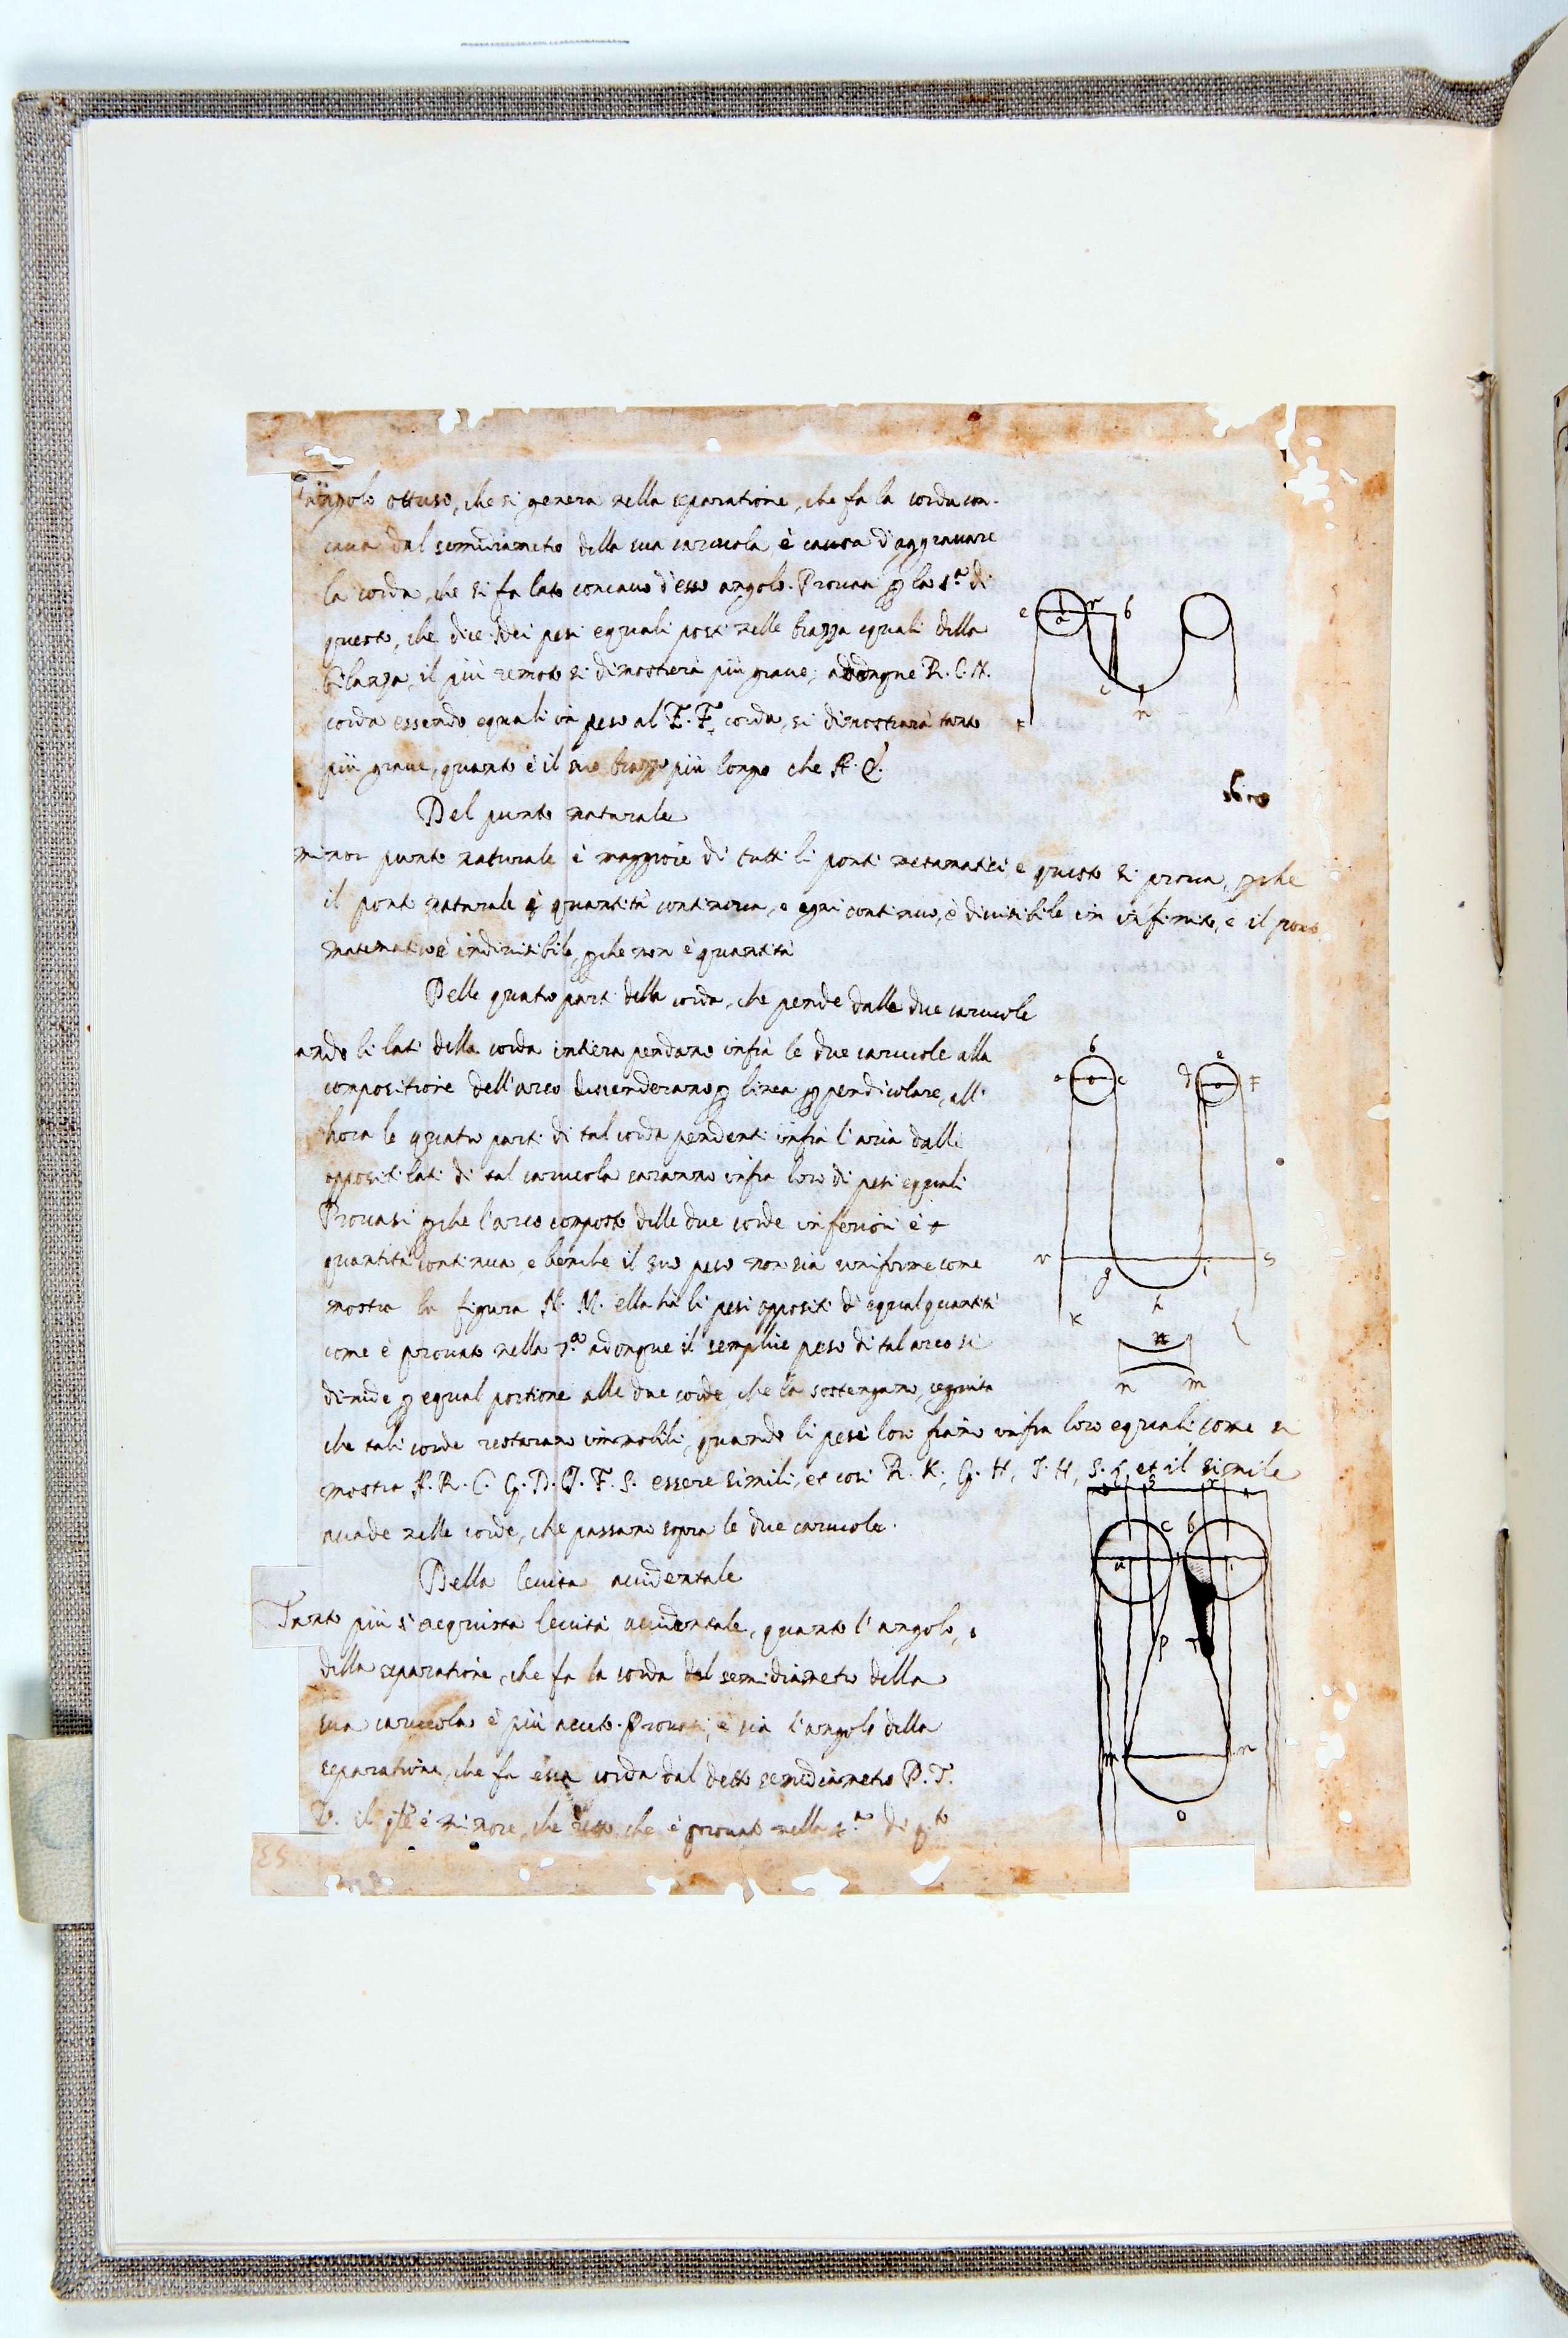 angolo ottuso, che si genera nella separatione, che fa la corda con-
caua dal semidiametro della sua carucola è causa d'aggrauare
la corda, che si fa lato concauo d'esso angolo. Prouasi ꝑ la 1.ª di
questo, che dice: dei pesi eguali posti nelle brazza equali della
bilanza, il più remoto si dimostrerà più graue; adongne R. C. N.
corda essendo equali in peso al E. F. corda, si dimostrarà tanto
più graue, quanto è il suo brazzo più longo che A.
Del punto naturale
minor punto naturale è maggiore di tutti li ponti metamatici, e questo si proua, ꝑche
il ponto naturale è quantità continoua, e ogni continuo, è diuisibile in infinito, e il ponto
matematico è indiuisibile, ꝑche non è quantità
Delle quatro parti della corda, che pende dalle due carucole
ando li lati della corda intiera pendano infrà le due carucole alla
compositione dell'arco descenderano ꝑ linea ꝑpendicolare, all'
hora le quatro parti di tal corda pendenti infrà l'aria dalli
oppositi lati di tal carucola saranno infra loro di pesi equali
Prouasi ꝑche l'arco composto delle due corde inferiori è
quantità continua, e benche il suo peso non sia uniforme come
mostra la figura N. M. ella hà li pesi oppositi di equal quantità
come è prouato nella 7.ª adonque il semplice peso di tal arco si
diuide ꝑ equal portione alle due corde, che la sostengano, seguita
che tali corde restarano immobili, quando li pesi loro siano infra loro equali come si
mostra A. R. C. G. D. J. F. S. essere simili, et cosi R. K. G. H, J. H, S. L. et il simile
accade nelle corde, che passano sopra le due carucole.
Della leuità accidentale
Tanto più s'acquista leuità accidentale, quanto l'angolo,
della separatione, che fa la corda dal semidiametro della
sua carucola è più acuto. Prouasi, e sia l'angolo della
separatione, che fa essa corda dal detto semidiametro P. T.
V. il è minore, che che è prouato nella di
e
a
r
b
c
n
b
a
c
d
e
F
r
g
i
S
h
K
L
n
m
c
b
a
p
m
n
o
53